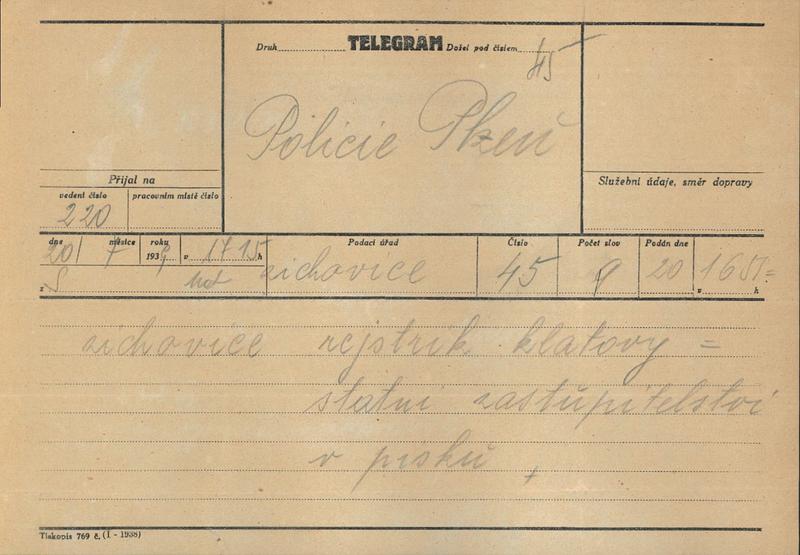 Druh TELEGRAM Došel pod číslem 45
Policie Plzeň
Přijal na
vedení číslo
pracovním místě číslo
220
Služební údaje, směr dopravy
dne 20/ měsíce 7 roku 193 v 1715 h
Podací úřad
Číslo
Počet slov
Podán dne
zichovice 45 9 20 1651=
z
v h
zichovice rejstrik klatovy =
statni zastupitelstvi
v pisku +
Tiskopis 769 č. (I - 1938)